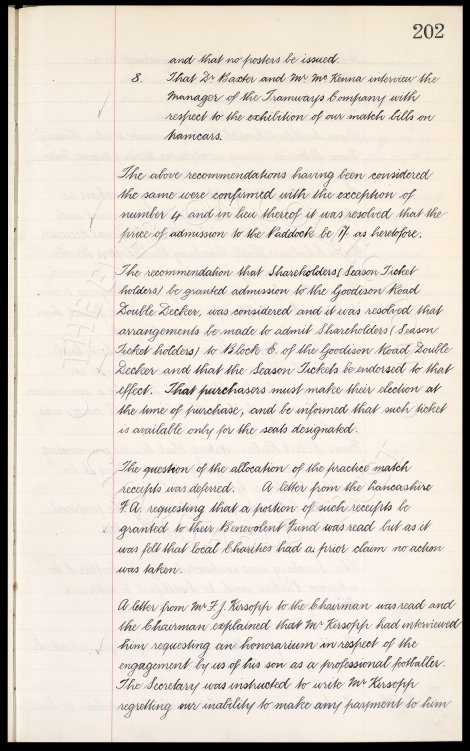 202
and that no posters be issued.
8. That Dr Baxter and Mr McKenna interview the
Manager of the Tramways Company with
respect to the exhibition of our match bills on
tramcars.
The above recommendations having been considered
the same were confirmed with the exception of
number 4 and in lieu thereof it was resolved that the
price of admission to the Paddock be 1/- as heretofore.
The recommendation that Shareholders (Season Ticket
holders) be granted admission to the Goodison Road
Double Decker, was considered and it was resolved that
arrangements be made to admit Shareholders (Season
Ticket holders) to Block E. of the Goodison Road Double
Decker and that the Season Tickets be endorsed to that
effect. That purchasers must make their election at
the time of purchase, and be informed that such ticket
is available only for the seats designated.
The question of the allocation of the practice match
receipts was deferred. A letter from the Lancashire
F.A. requesting that a portion of such receipts be
granted to their Benevolent Fund was read but as it
was felt that local Charities had a prior claim no action
was taken.
A letter from Mr F. J. Kirsopp to the Chairman was read and
the Chairman explained that Mr Kirsopp had interviewed
him requesting an honorarium in respect of the
engagement by us of his son as a professional footballer.
The Secretary was instructed to write Mr Kirsopp
regretting our inability to make any payment to him